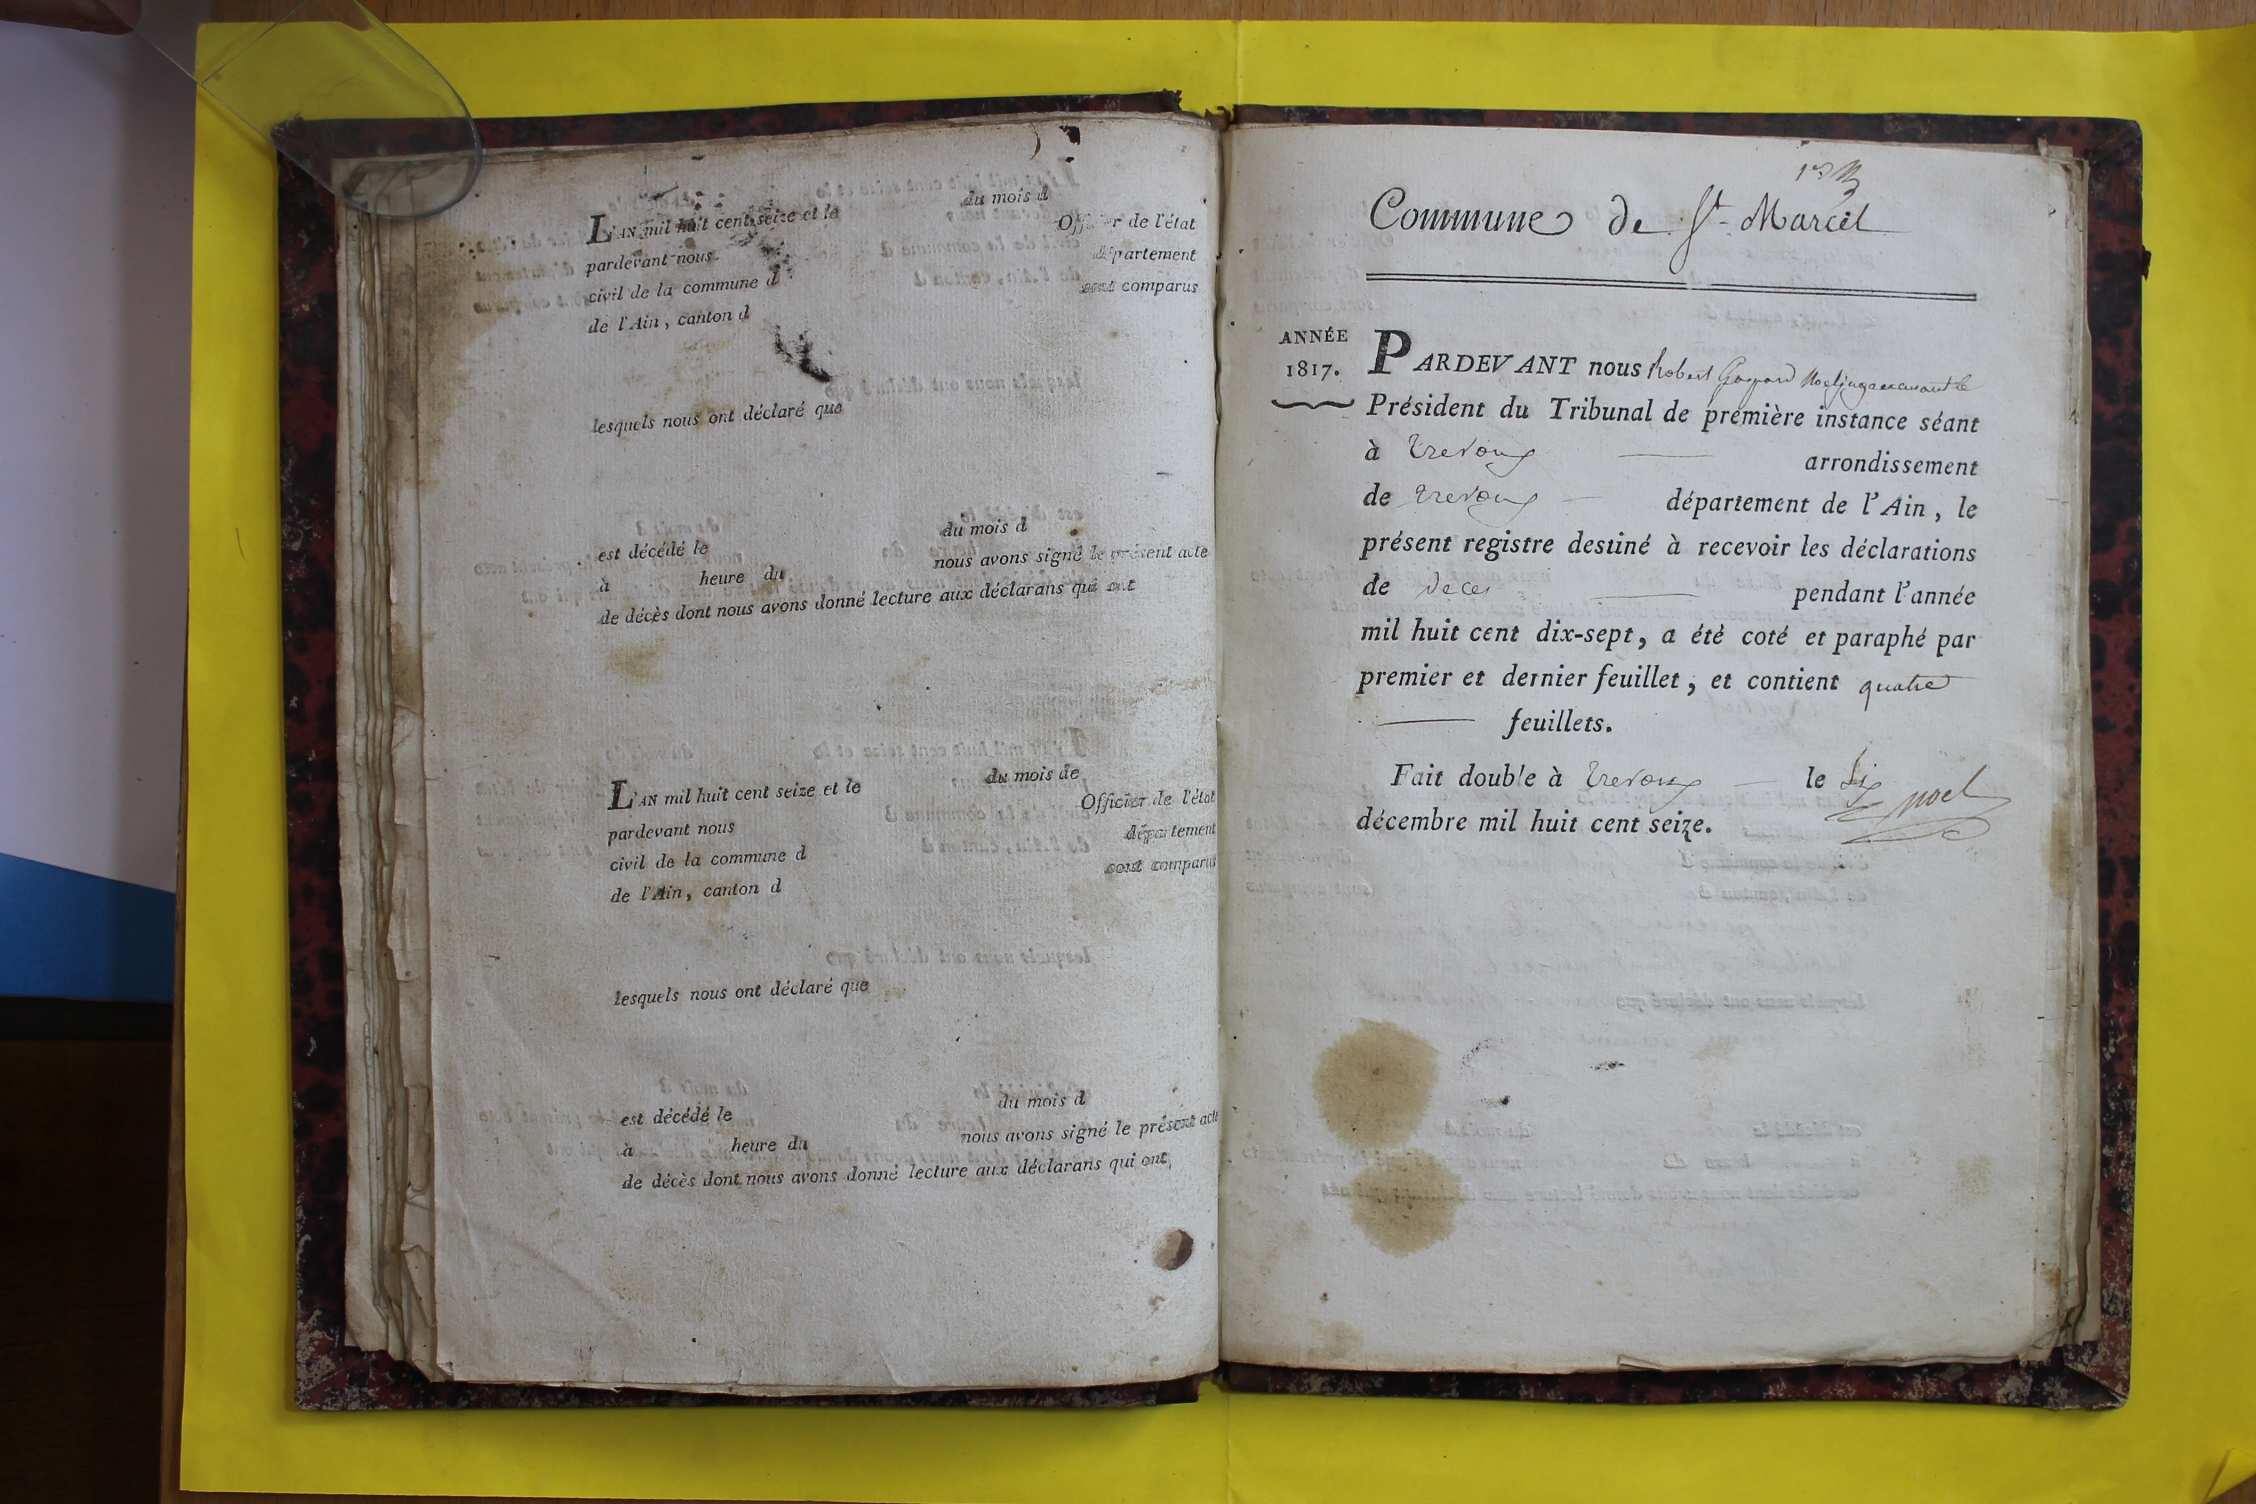 L'AN mil huit cent seize et le du mois d
pardevant nous Officier de l'état
civil de la commune d département
de l'Ain, canton d sont comparus
lesquels nous ont déclaré que
est décédé le du mois d
à heure du nous avons signé le présent acte
de décès dont nous avons donné lecture aux déclarans qui ont
L'AN mil huit cent seize et le du mois de
pardevant nous Officier de l'état
civil de la commune d département
de l'Ain, canton d sont comparus
lesquels nous ont déclaré que
est décédé le du mois d
à heure du nous avons signé le présent acte
de décès dont nous avons donné lecture aux déclarans qui ont
Commune de St. Marcel
ANNÉE
1817.
PARDEVANT nous Robert Gaspard Noel
Président du Tribunal de première instance séant
à Trevoux arrondissement
de Trevoux département de l'Ain, le
présent registre destiné à recevoir les déclarations
de Deces pendant l'année
mil huit cent dix-sept, a été coté et paraphé par
premier et dernier feuillet, et contient quatre
feuillets.
Fait double à Trevoux le Six
décembre mil huit cent seize.
Noel